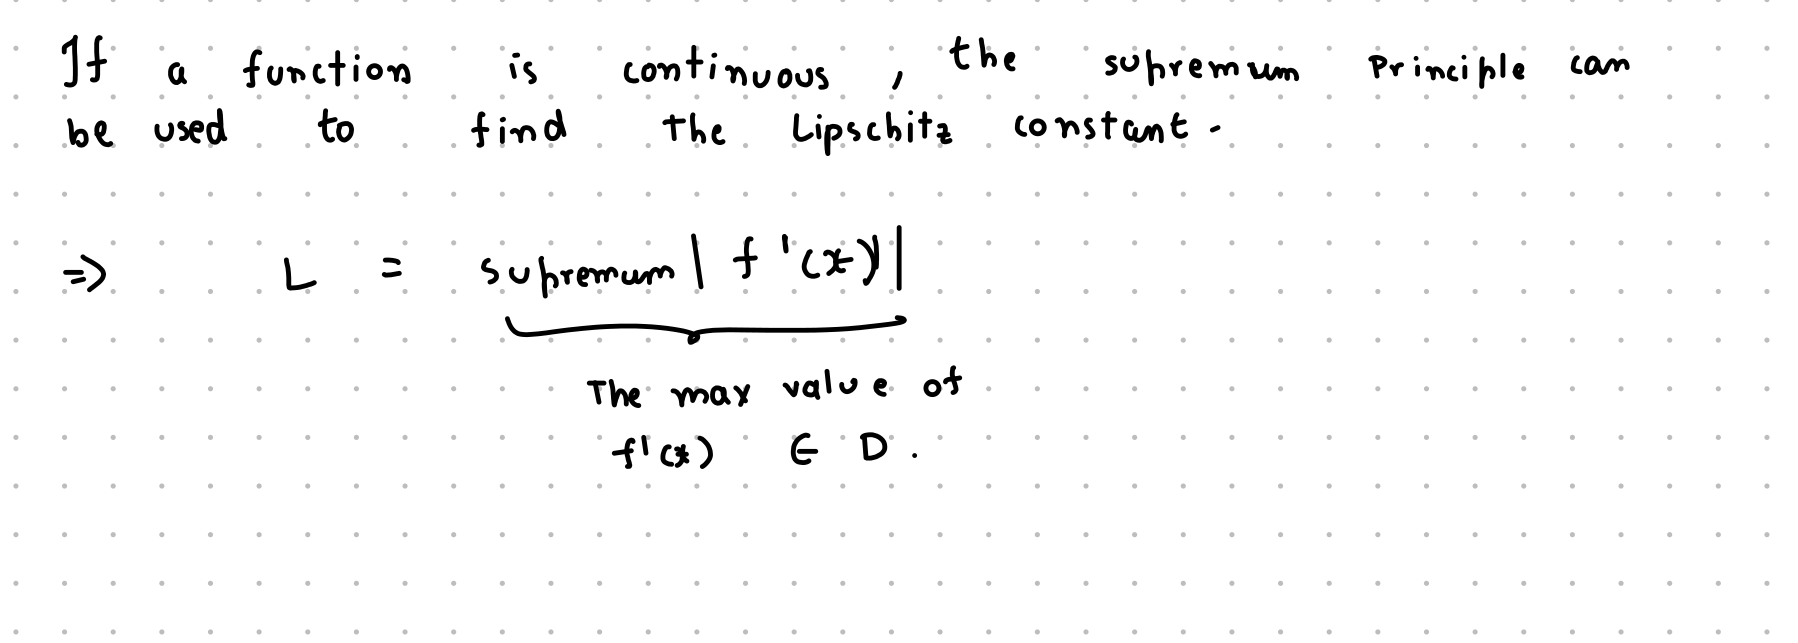 If a function is continuous, the supremum Principle can
be used to find the Lipschitz constant.
=> L = supremum | f'(x) |
The max value of
f'(x) ∈ D.